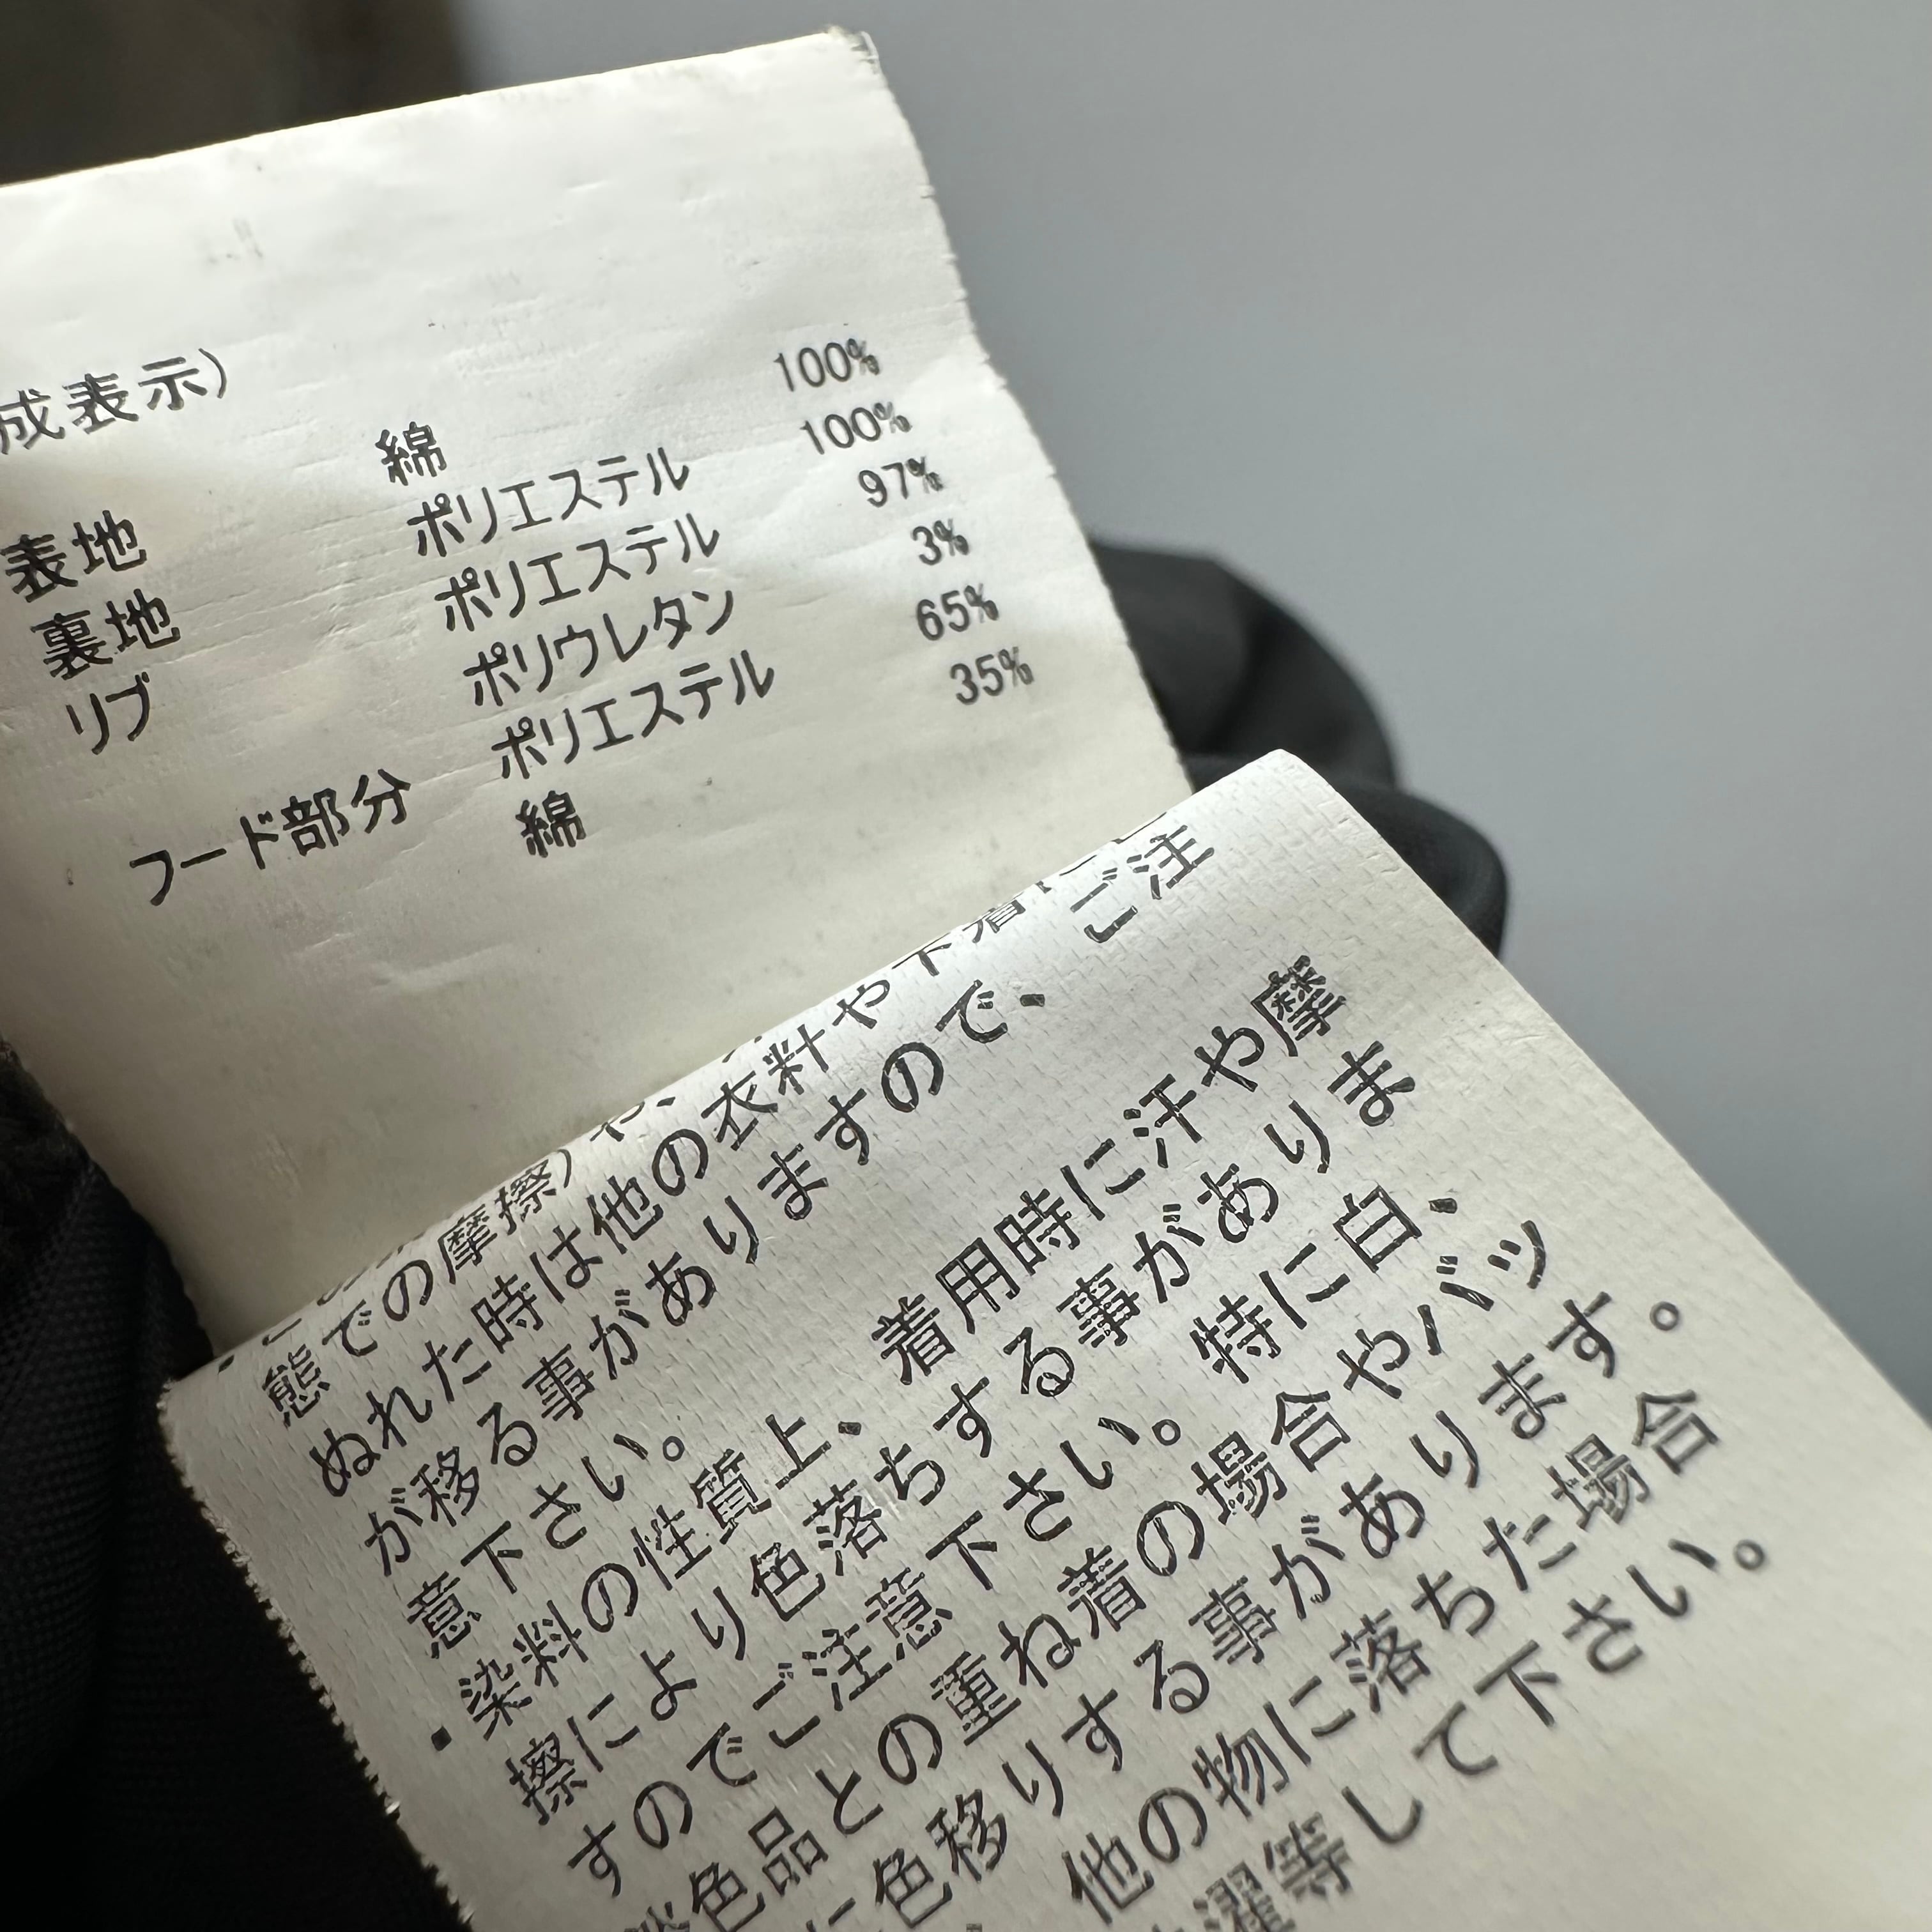 成表示)
表地 綿 100%
裏地 ポリエステル 100%
リブ ポリエステル 97%
ポリウレタン 3%
フード部分 ポリエステル 65%
綿 35%
態での摩擦)や、
ぬれた時は他の衣料や下着
が移る事がありますので、ご注
意下さい。
・染料の性質上、着用時に汗や摩
擦により色落ちする事がありま
すのでご注意下さい。特に白、
淡色品との重ね着の場合やバッ
に色移りする事があります。
他の物に落ちた場合
濯等して下さい。